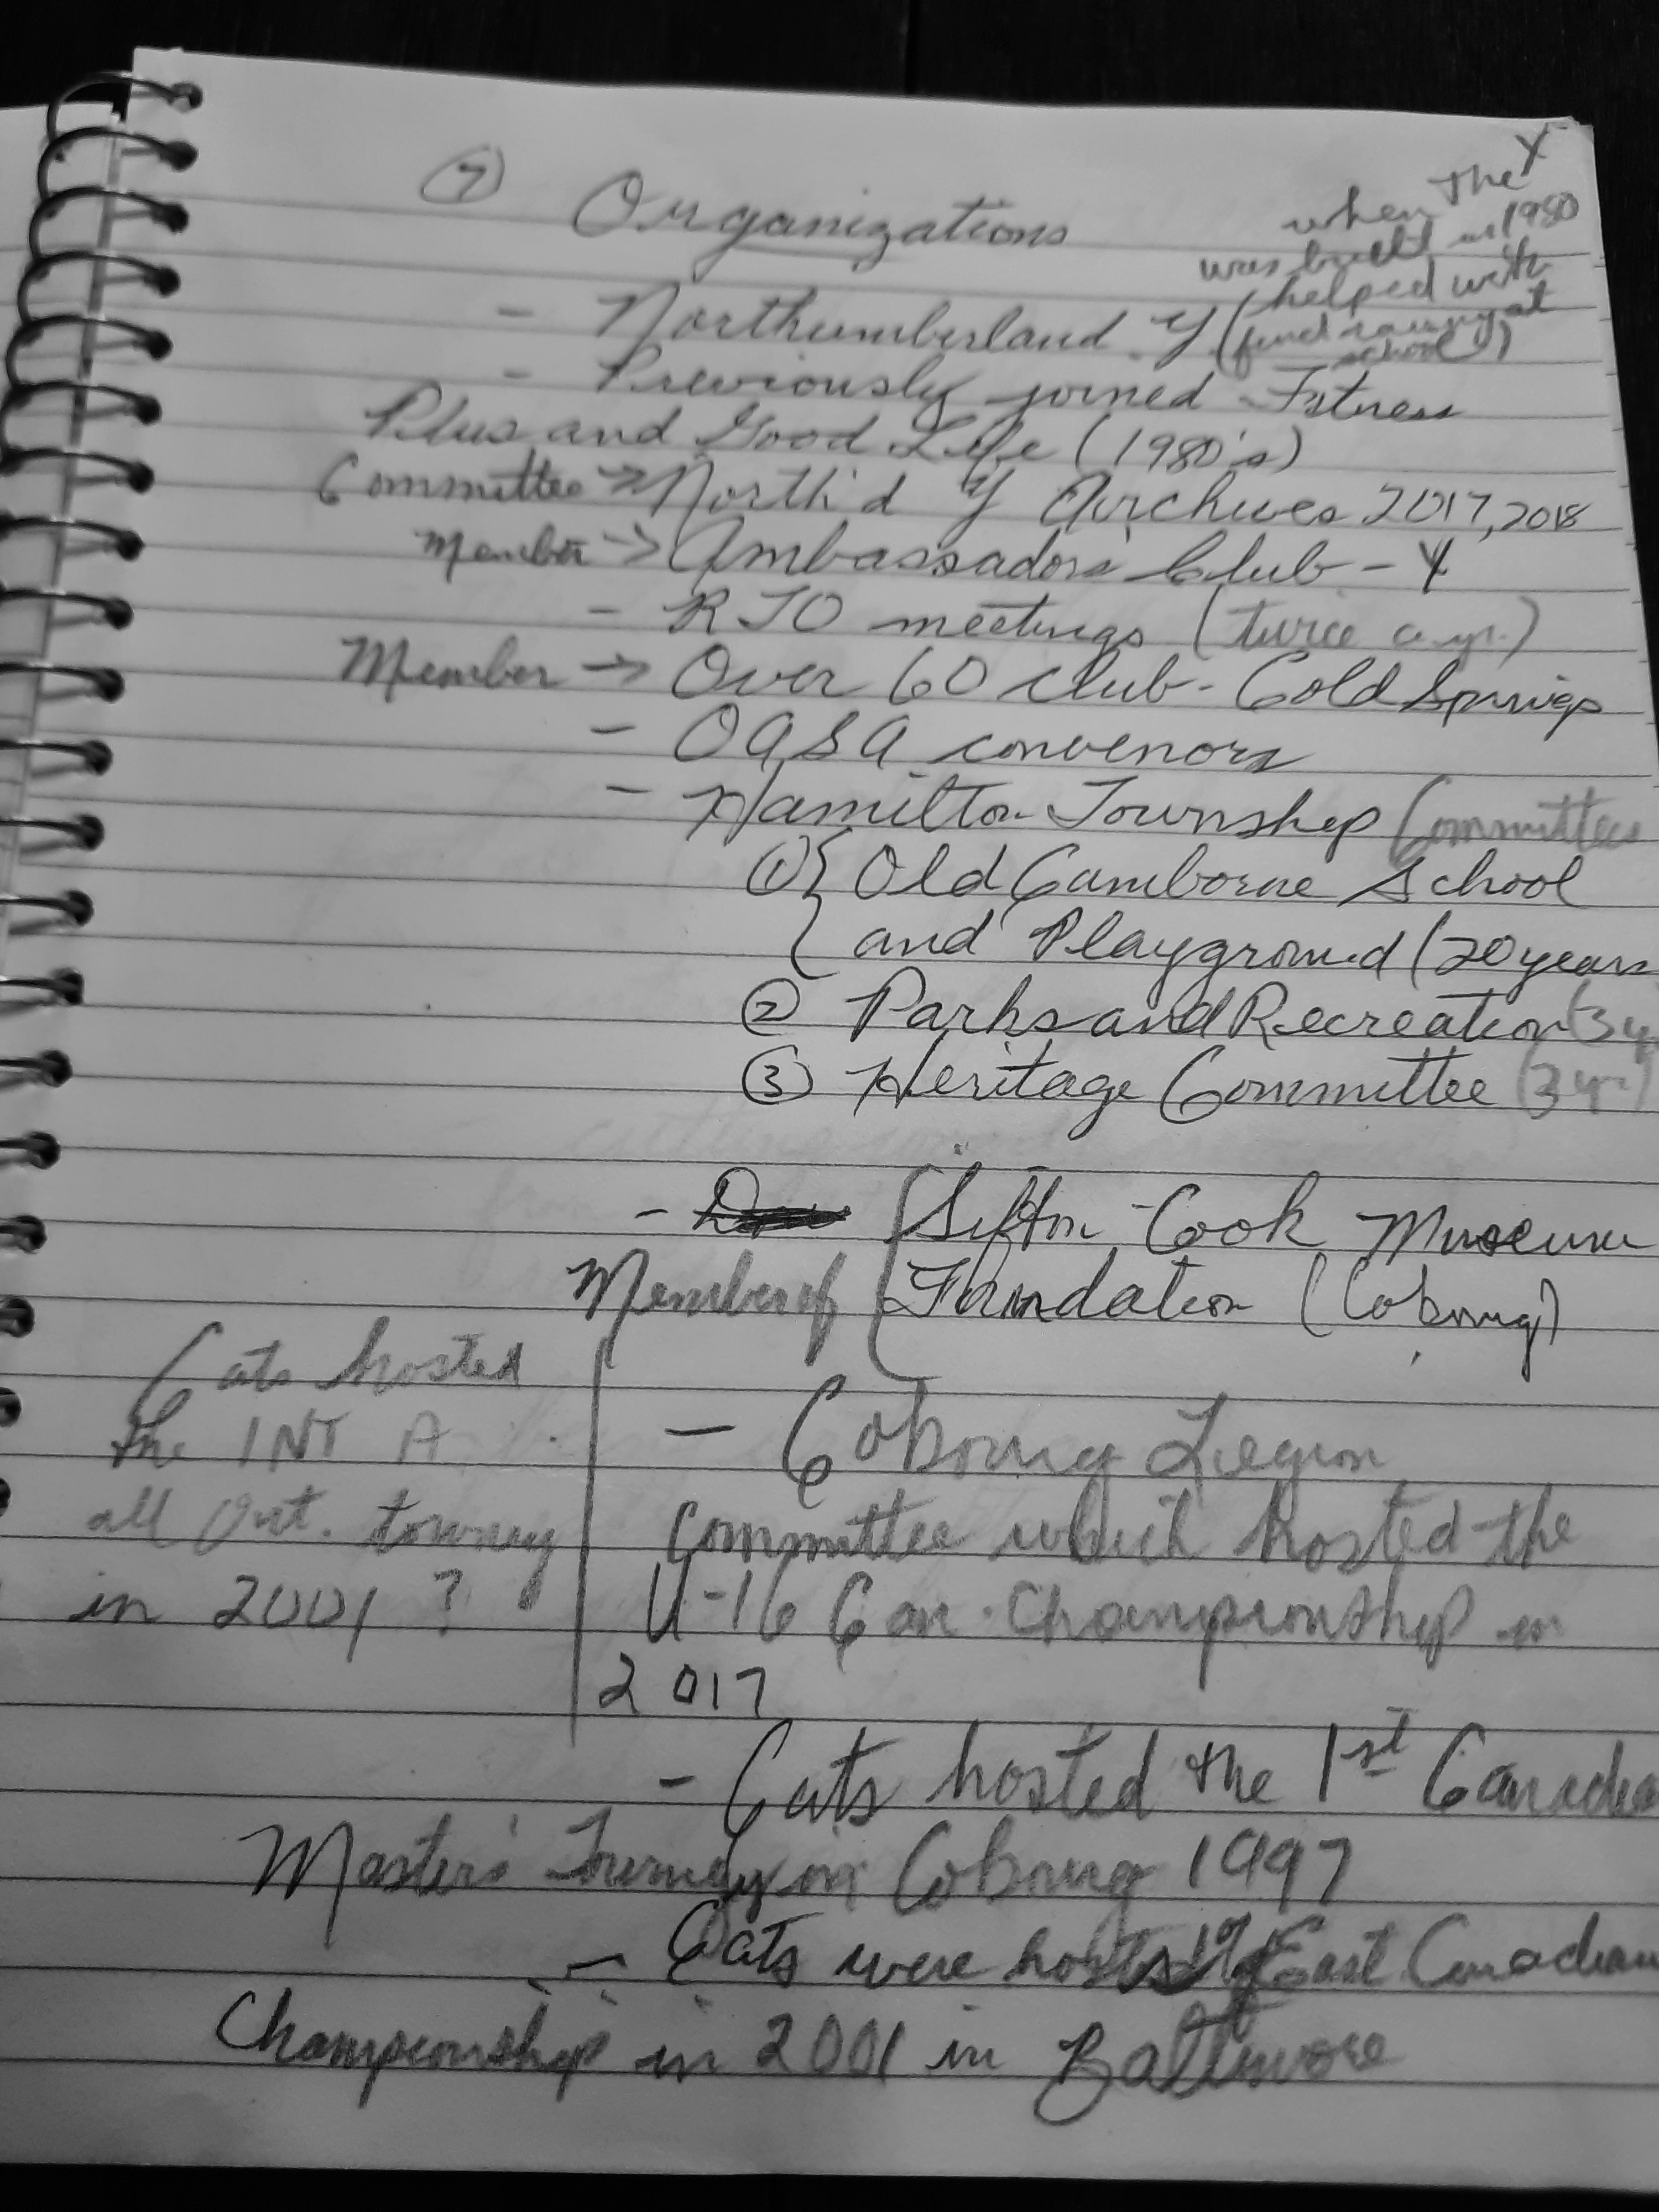 7 Organizations
when The Y
was built in 1980
helped with
fund raising at
school)
- Northumberland Y (
- Previously joined Fitness
Plus and Good Life (1980's)
Committee → North'd Y Archives 2017, 2018
Member → Ambassadors Club - Y
- RTO meetings (twice a yr.)
Member → Over 60 club - Cold Springs
- OASA convenors
- Hamilton Township Committees
(1) { Old Camborne School
and Playground (20 years
(2) Parks and Recreation (3 y
(3) Heritage Committee (3 yr)
- Sifton-Cook Museum
Member of Foundation (Cobourg)
Cats hosted
the INT A
all Ont. tourney
in 2001 ?
- Cobourg Legion
Committee which hosted the
U-16 Can. Championship in
2017
- Cats hosted the 1st Canadian
Master's Tourney in Cobourg 1997
- Cats were hosts of East Canadian
Championship in 2001 in Baltimore